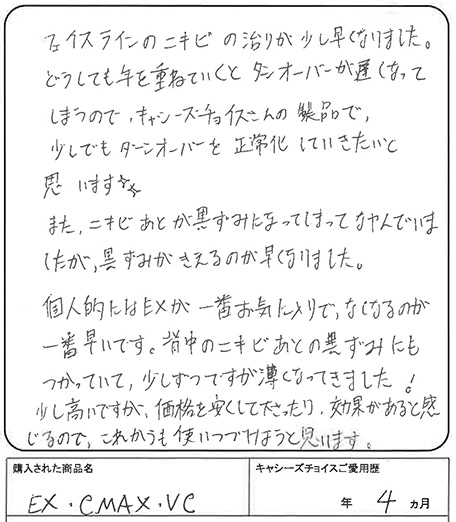 フェイスラインのニキビの治りが少し早くなりました。
どうしても年を重ねていくとターンオーバーが遅くなって
しまうので、キャシーズチョイスさんの製品で、
少しでもターンオーバーを正常化していきたいと
思います☆☆
また、ニキビあとが黒ずみになってしまってなやんでいま
したが、黒ずみがきえるのが早くなりました。
個人的にはEXが一番お気に入りで、なくなるのが
一番早いです。背中のニキビあとの黒ずみにも
つかっていて、少しずつですが薄くなってきました！
少し高いですが、価格を安くして下さったり、効果があると感
じるので、これからも使いつづけようと思います。
購入された商品名 キャシーズチョイスご愛用歴
EX・CMAX・VC 年 4 ヵ月